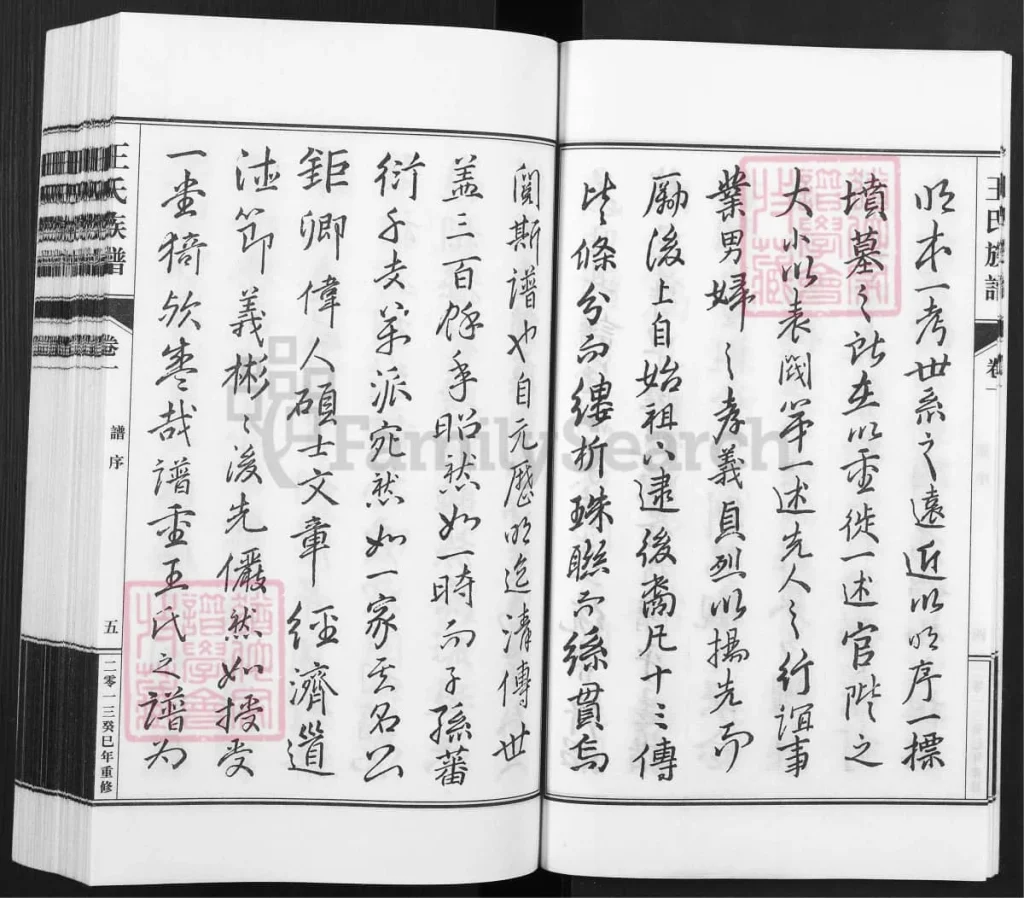 王氏族譜
卷一
明本一考世系之遠近以明序一標
墳墓之所在以重徙一述官階之
大小以表閥第一述先人之行誼事
業男婦之孝義貞烈以揚先而
勵後上自始祖以逮後裔凡十三傳
皆條分而縷析珠聯而絲貫焉
閱斯譜也自元歷明迄清傳世
盖三百餘年昭然如一時而子孫蕃
衍千支萬派宛然如一家其名公
鉅卿偉人碩士文章經濟道
德節義彬々後先儼然如授受
一堂猗歟盛哉譜重王氏之譜為
王氏族譜
卷一
譜序
五
二零一三癸巳年重修
FamilySearch